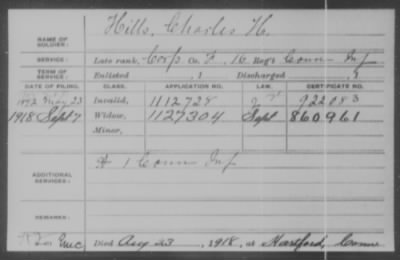 NAME OF SOLDIER: Hills, Charles H.
SERVICE: Late rank, Corp Co. F, 16 Reg't Conn Inf
TERM OF SERVICE: Enlisted , 1 Discharged , 1
DATE OF FILING. CLASS. APPLICATION NO. LAW. CERTIFICATE NO.
1892 May 23 Invalid, 1112728 922083
1918 Sept 7 Widow, 1127304 Sept 860961
Minor,
ADDITIONAL SERVICES: 1 Conn Inf
REMARKS:
Died Aug 23, 1918, at Hartford, Conn